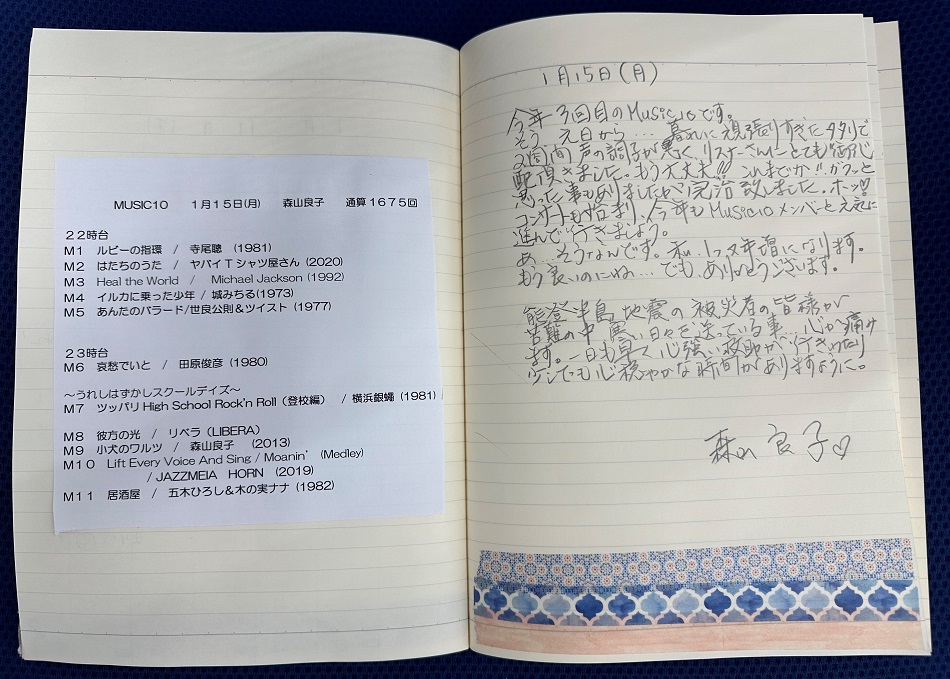 MUSIC10 1月15日(月) 森山良子 通算1675回
22時台
M1 ルビーの指環 / 寺尾聰 (1981)
M2 はたちのうた / ヤバイTシャツ屋さん (2020)
M3 Heal the World / Michael Jackson (1992)
M4 イルカに乗った少年 / 城みちる(1973)
M5 あんたのバラード/世良公則&ツイスト (1977)
23時台
M6 哀愁でいと / 田原俊彦 (1980)
～うれしはずかしスクールデイズ～
M7 ツッパリHigh School Rock'n Roll (登校編) / 横浜銀蝿 (1981)
M8 彼方の光 / リベラ (LIBERA)
M9 小犬のワルツ / 森山良子 (2013)
M10 Lift Every Voice And Sing / Moanin' (Medley)
/ JAZZMEIA HORN (2019)
M11 居酒屋 / 五木ひろし&木の実ナナ (1982)
1月15日(月)
今年3回目のMusic10です。
そう 元日から… 暮れに頑張りすぎたタタリで
2週間 声の調子が悪く、リスナーさんにとても御心
配頂きました。もう大丈夫!! これまでか!!ガラッと
思った事もありましたが完治致しました。ホッ♡
コンサートも始まり、今年もMusic10メンバーと元気に
進んで行きましょう。
あ…そうなんです。私 1ッ才増になります。
もう良いのにね… でも、ありがとうございます。
能登半島地震の被災者の皆様が
苦難の中 寒い日々を送っている事… 心が痛み
ます。一日も早く心強い救助が行きわたり
少しでも心穏やかな時間がありますように。
森山良子♡